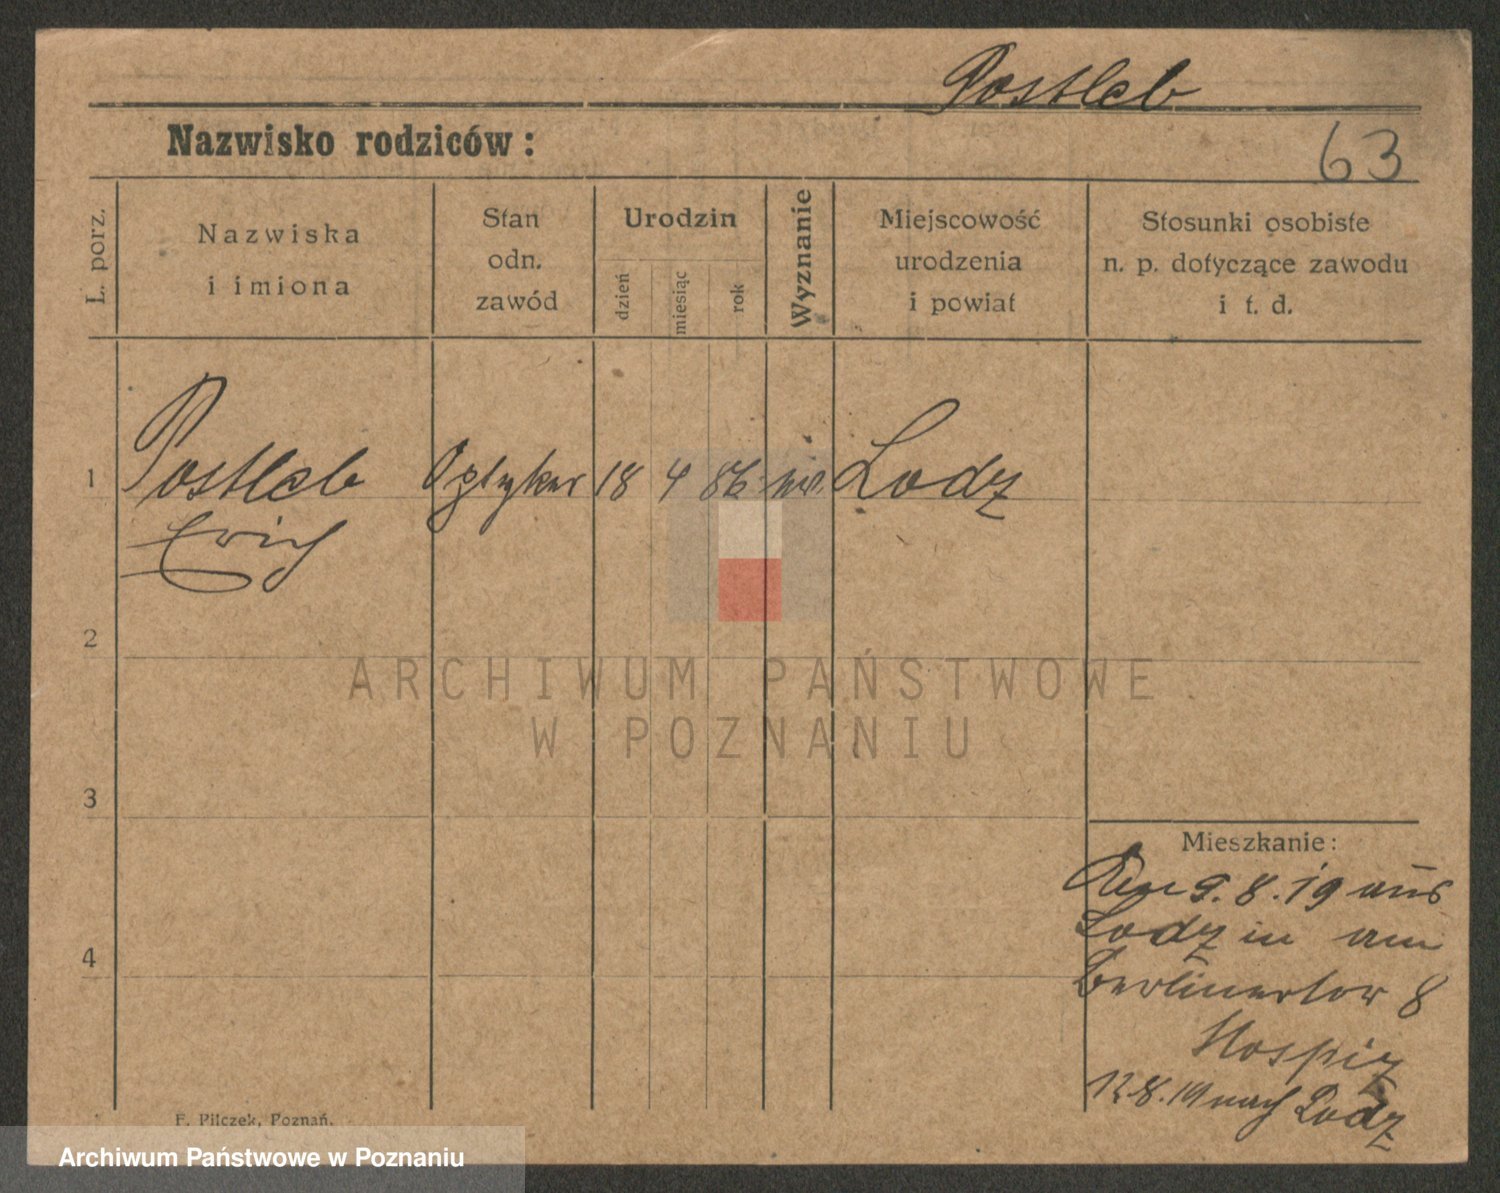 Postleb
Nazwisko rodziców:
63
L. porz.
Nazwiska
i imiona
Stan
odn.
zawód
Urodzin
dzień
miesiąc
rok
Wyznanie
Miejscowość
urodzenia
i powiat
Stosunki osobiste
n. p. dotyczące zawodu
i t. d.
1
Postleb
Erich
Optyker
18
4
86
ew.
Lodz
2
3
4
Mieszkanie:
9.8.19 aus
Lodz in am
Berlinertor 8
Hospiz
12.8.19 nach Lodz
F. Pilczek, Poznań.
ARCHIWUM PAŃSTWOWE
W POZNANIU
Archiwum Państwowe w Poznaniu